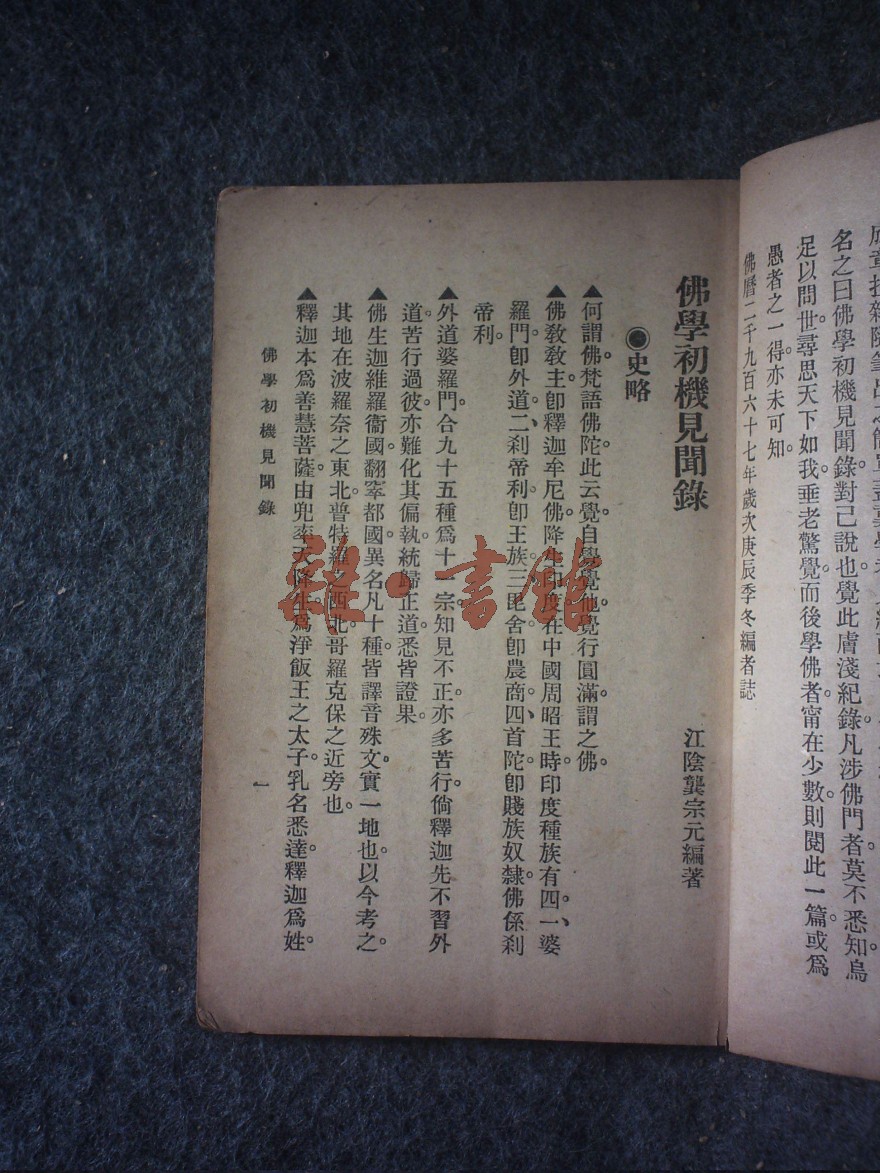 名之曰佛學初機見聞錄。對己說也。覺此膚淺紀錄。凡涉佛門者。莫不悉知。烏
足以問世。尋思天下如我垂老驚覺而後學佛者。甯在少數。則閱此一篇。或爲
愚者之一得。亦未可知。
佛曆二千九百六十七年歲次庚辰季冬編者誌
佛學初機見聞錄
江陰龔宗元編著
◉史略
▲何謂佛。梵語佛陀。此云覺。自學覺他。覺行圓滿。謂之佛。
▲佛敎敎主。卽釋迦牟尼佛。降生印度。在中國周昭王時。印度種族有四。一、婆
羅門。卽外道。二、刹帝利。卽王族。三毘舍。卽農商。四、首陀。卽賤族奴隸。佛係刹
帝利。
▲外道婆羅門。合九十五種。爲十一宗。知見不正。亦多苦行。倘釋迦先不習外
道苦行過。彼亦難化其偏執。統歸正道。悉皆證果。
▲佛生迦維羅衞國。翻窣都國。異名凡十種。皆譯音殊文。實一地也。以今考之。
其地在波羅奈之東北。普特羅之西北。哥羅克保之近旁也。
▲釋迦本爲善慧菩薩。由兜率天降生。爲淨飯王之太子。乳名悉達。釋迦爲姓。
佛學初機見聞錄
一
雜·書館